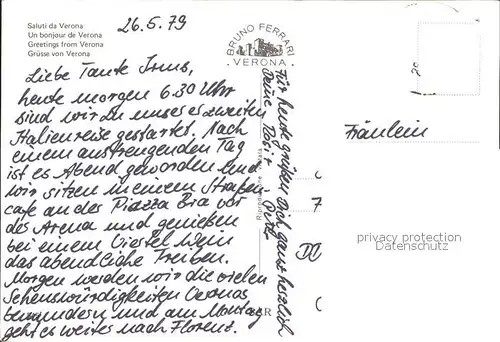 Saluti da Verona
Un bonjour de Verona
Greetings from Verona
Grüsse von Verona
26.5.79
BRUNO FERRARI
VERONA
Liebe Tante Irms,
heute morgen 6.30 Uhr
sind wir zu unserer zweiten
Italienreise gestartet. Nach
einem anstrengenden Tag
ist es Abend geworden und
wir sitzen in einem Straßen-
cafe an der Piazza Bra vor
der Arena und genießen
bei einem Viertel Wein
das abendliche Treiben.
Morgen werden wir die vielen
Sehenswürdigkeiten Veronas
bewundern und am Montag
geht es weiter nach Florenz.
Für heute grüßen Dich ganz herzlich
Deine
Fräulein
privacy protection
Datenschutz